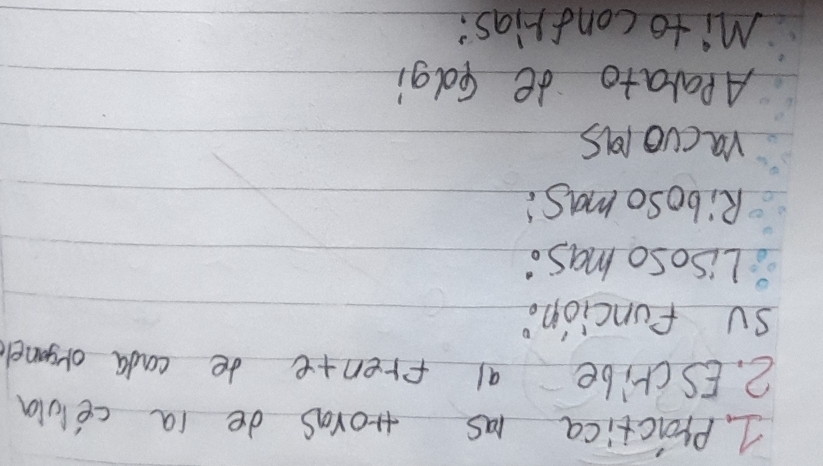 1. Práctica las trovas de la célula
2. EScribe al frente de cada organelo
su función:
Lisosomas:
Ribosomas:
vacuolas
Aparato de Golgi
Mitocondrias: